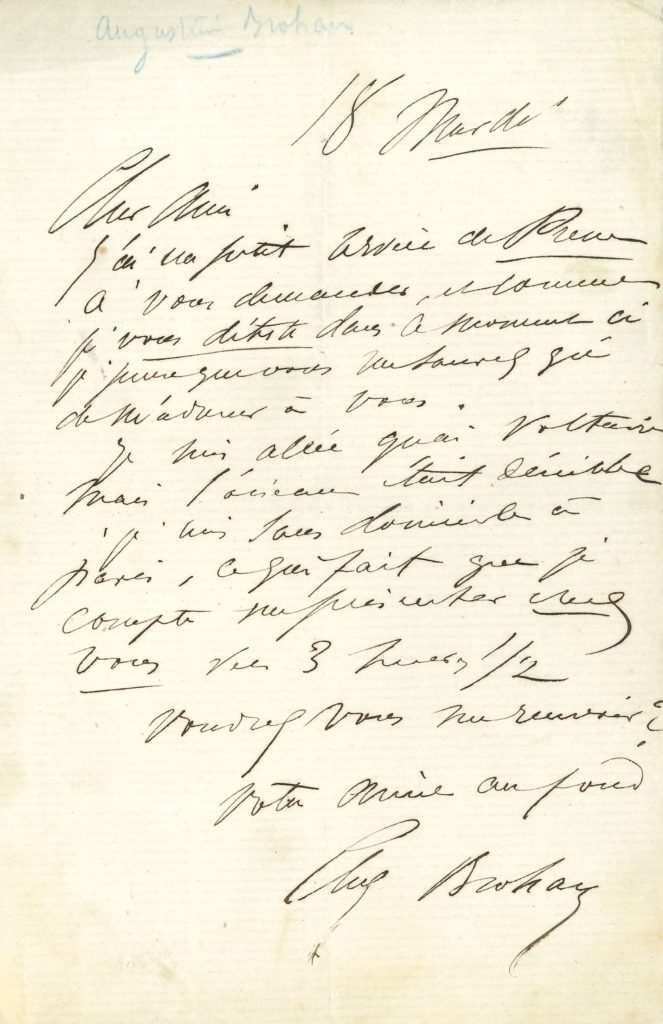 Augustine Brohan
18 Mardi
Cher Ami
J'ai un petit service de Presse
à vous demander, et comme
je vous déteste dans ce moment ci
je pense que vous ne saurez gré
de m'adresser à vous.
Je suis allée quai Voltaire
mais l'oiseau était déniché
je suis sans domicile à
Paris, ce qui fait que je
compte me présenter chez
vous vers 3 heures 1/2
voudrez vous me recevoir?
votre amie au fond
Aug Brohan